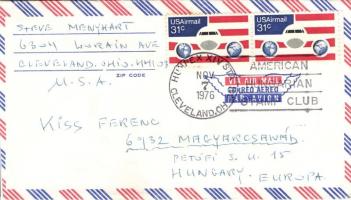 STEVE MENYHART
6304 LORAIN AVE
CLEVELAND, OHIO. 44103
ZIP CODE
U.S.A.
USAirmail
31c
USAirmail
31c
HUPEX XIV STA
NOV
7
1976
CLEVELAND, OH
AMERICAN
HUNGARIAN
STAMP CLUB
VIA AIR MAIL
CORREO AEREO
PAR AVION
KISS FERENC
6932 MAGYARCSANÁD
PETŐFI S. U. 15
HUNGARY - EUROPA